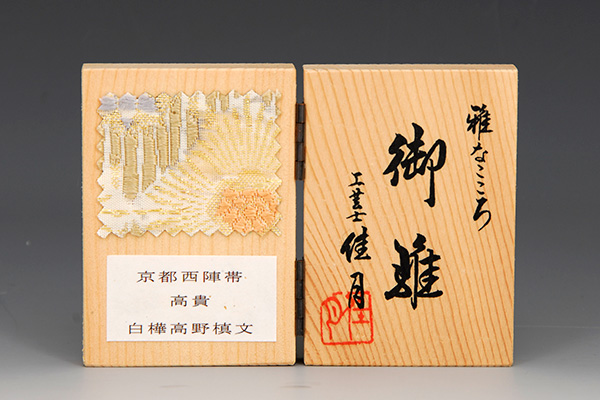 京都西陣帯
高貴
白樺高野槙文
雅なこころ
御雛
工芸士 佳月